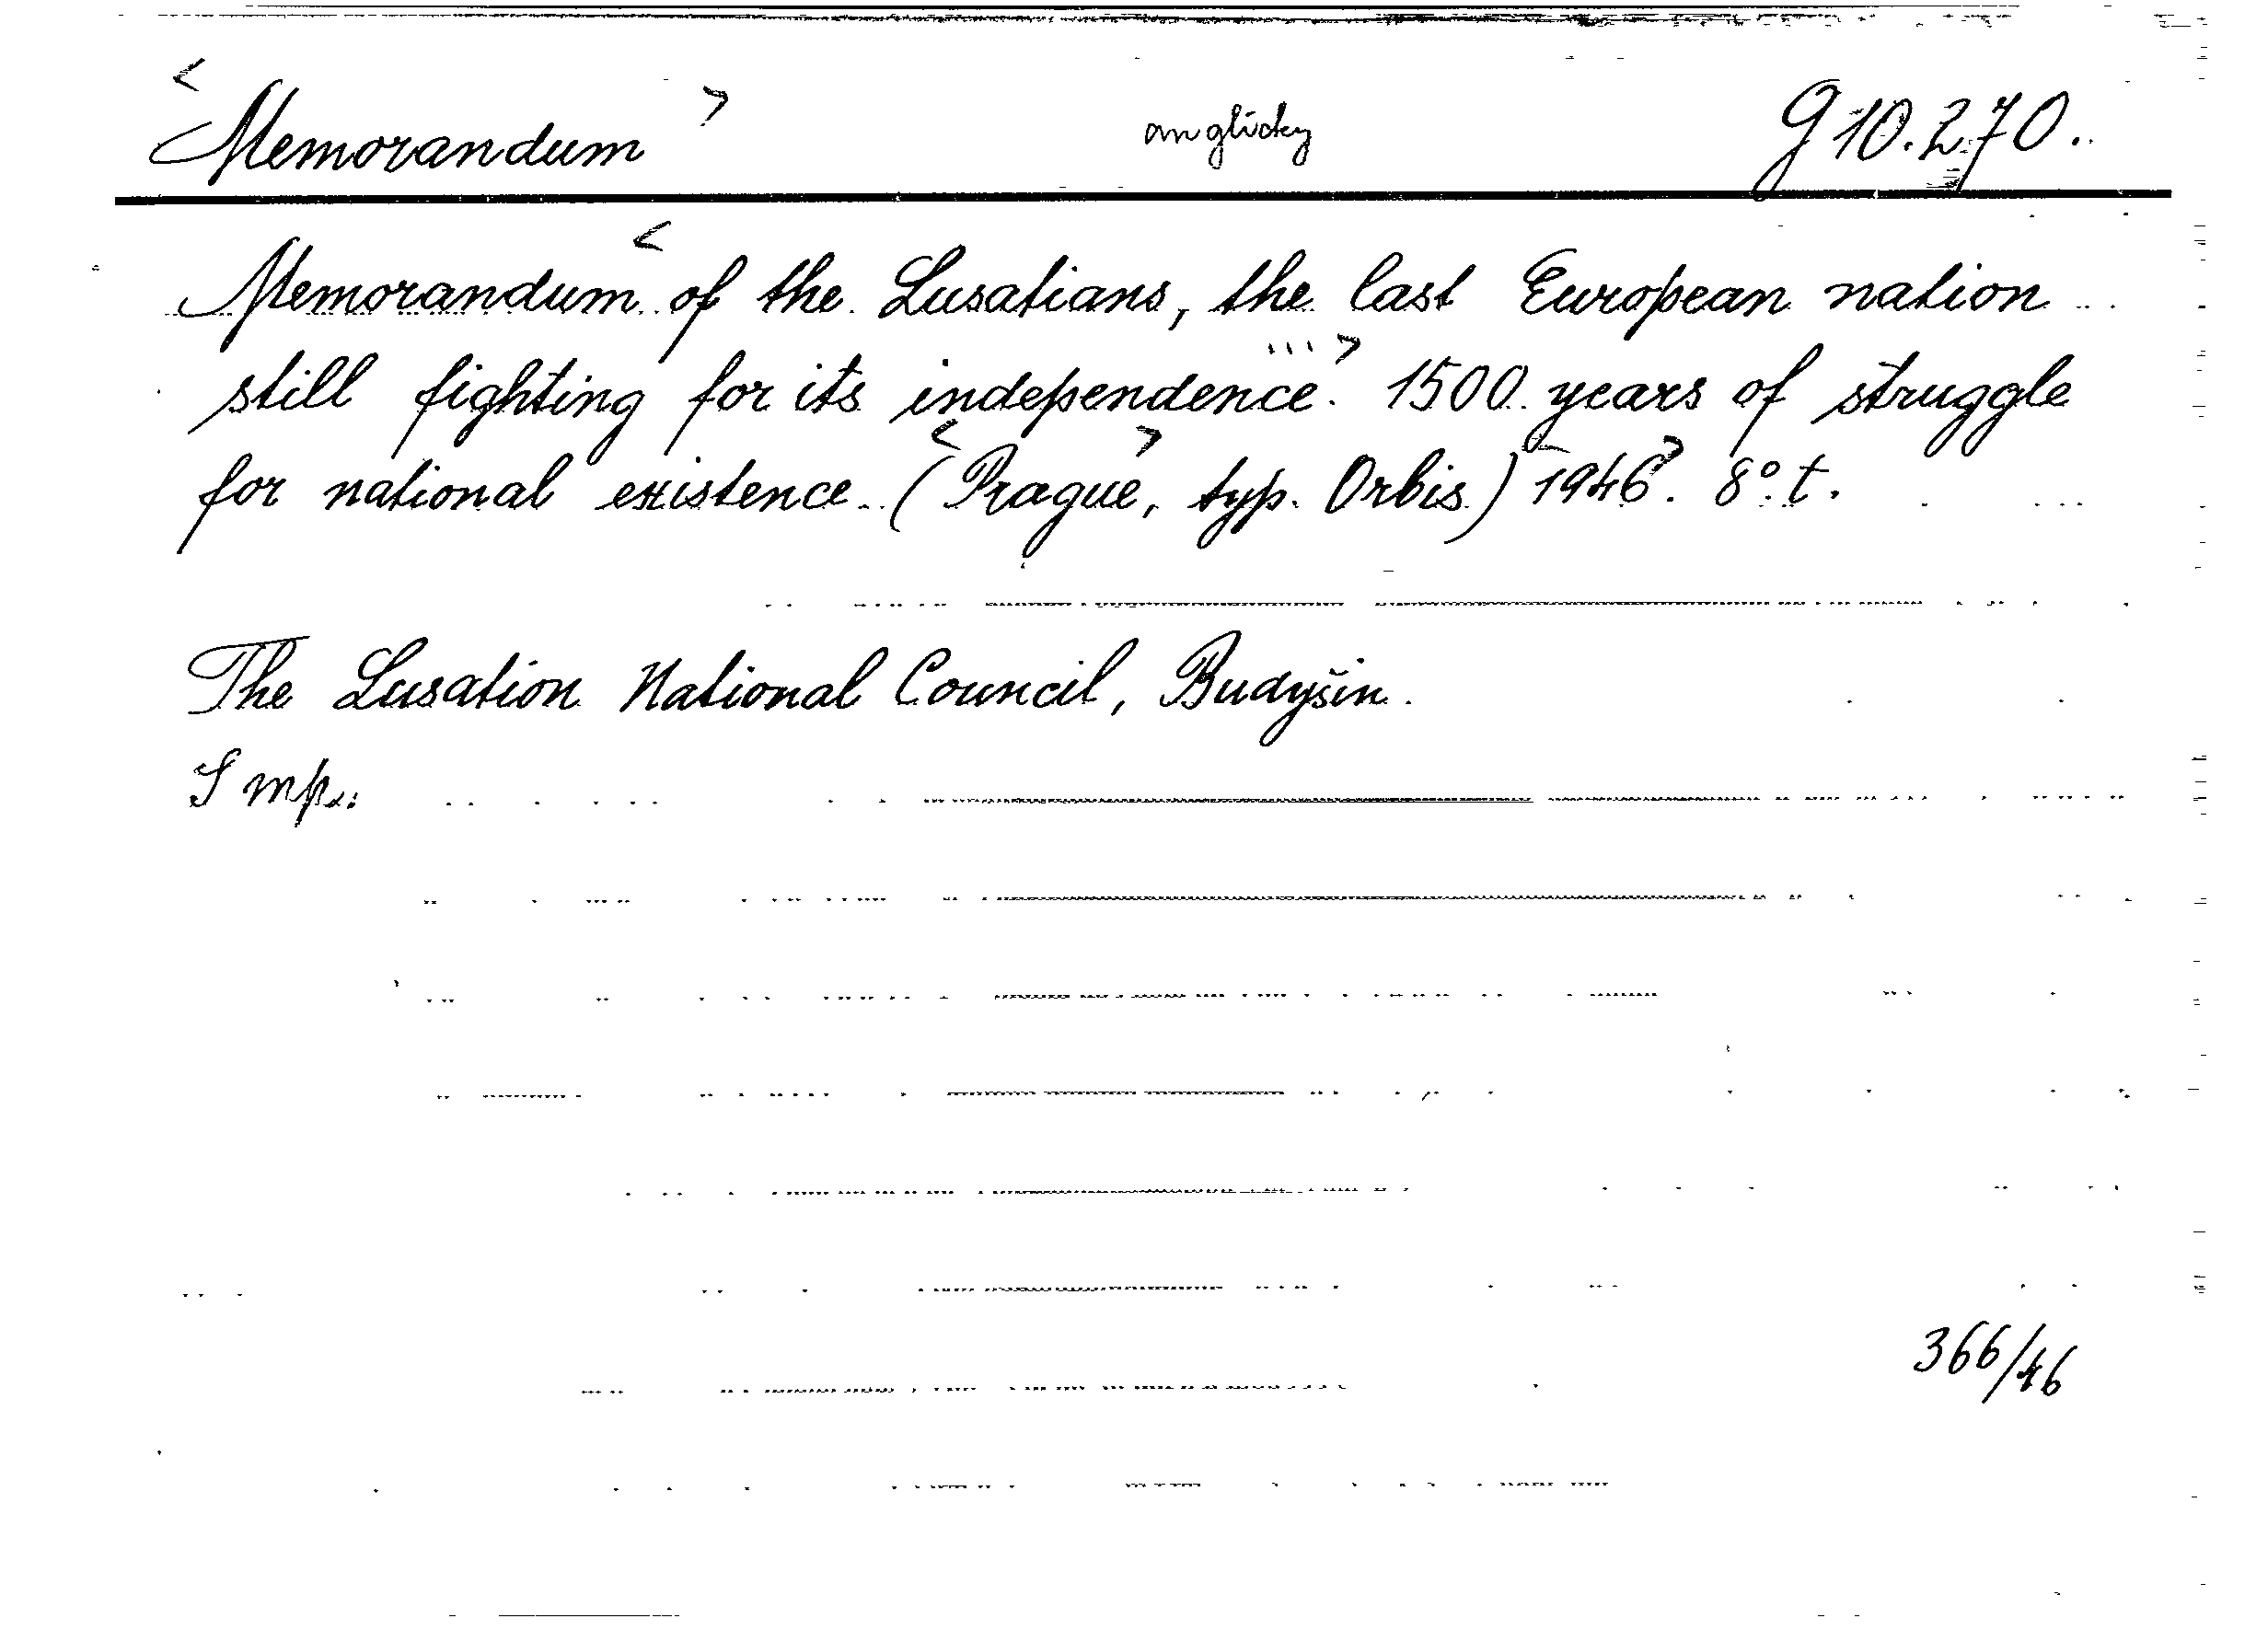 <Memorandum> anglicky G 10.270.
Memorandum <of the Lusatians, the last European nation
still fighting for its independence...>. 1500 years of struggle
for national existence. (<Prague>, typ. Orbis.) <1946>. 8°. t.
The Lusation National Council, Budyšin.
Imp.:
366/46